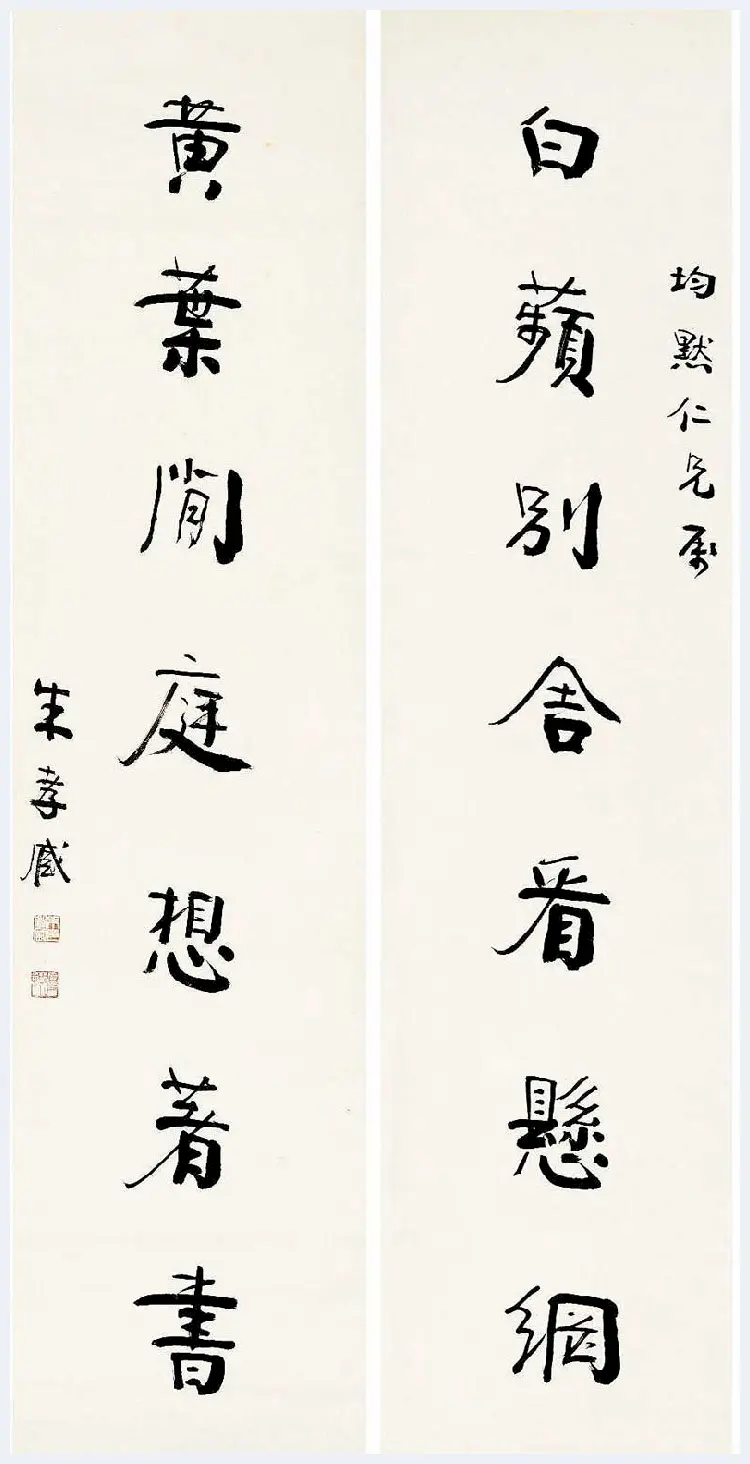 均默仁兄属
白蘋別舍看懸網
黃葉閒庭想著書
朱孝臧